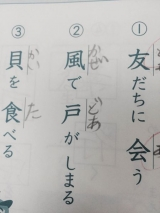 ① 友だちに会う
② 風で戸がしまる
かぜ
どあ
③ 貝を食べる
かい
た